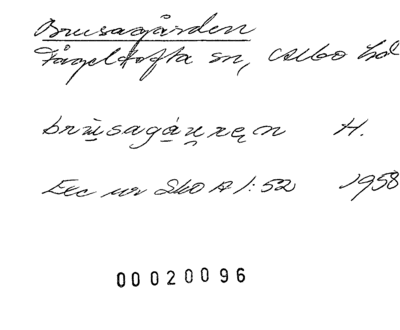 Brusagården
Fågeltofta sn, Albo hd
brusagáṛṇen H.
Exc ur Sko A 1:52 1958
00020096